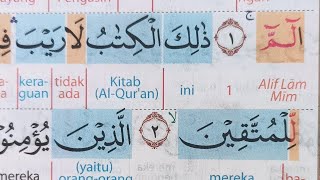 الٓمّٓ ۚ ١ ذٰلِكَ الْكِتٰبُ لَا رَيْبَ
Alif Lām Mīm 1 ini Kitab (Al-Qur'an) tidak ada kera-guan
لِّلْمُتَّقِيْنَ ۙ ٢ الَّذِيْنَ يُؤْمِنُوْ
mereka (yaitu) orang-orang mereka